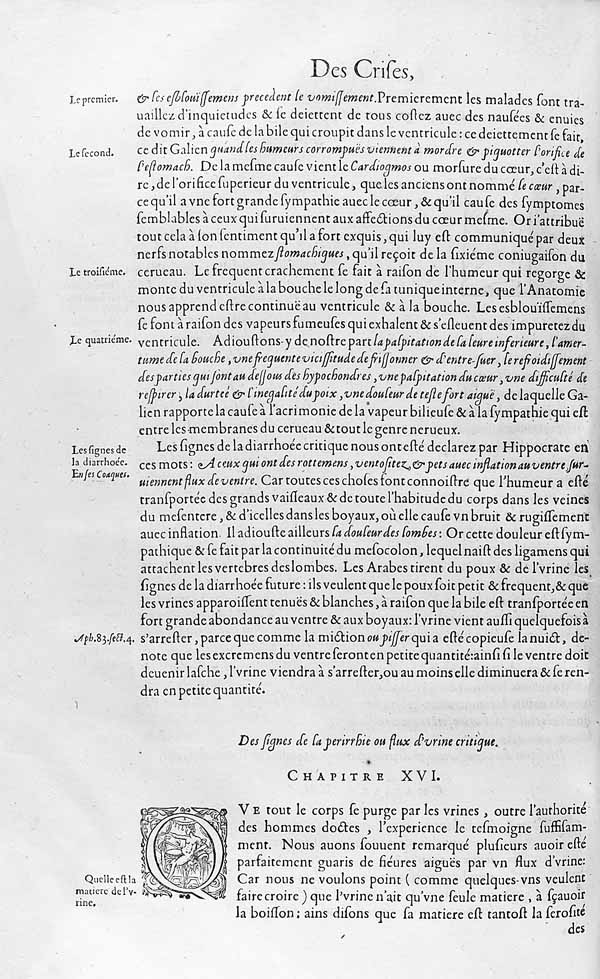 Des Crises,
Le premier.
& ses esbloüissemens precedent le vomissement. Premierement les malades sont tra-
uaillez d'inquietudes & se deiettent de tous costez auec des nausées & enuies
de vomir, à cause de la bile qui croupit dans le ventricule : ce deiettement se fait,
Le second.
ce dit Galien quand les humeurs corrompuës viennent à mordre & piquotter l'orifice de
l'estomach. De la mesme cause vient le Cardiogmos ou morsure du cœur, c'est à di-
re, de l'orifice superieur du ventricule, que les anciens ont nommé le cœur, par-
ce qu'il a vne fort grande sympathie auec le cœur, & qu'il cause des symptomes
semblables à ceux qui suruiennent aux affections du cœur mesme. Or i'attribuë
tout cela à son sentiment qu'il a fort exquis, qui luy est communiqué par deux
nerfs notables nommez stomachiques, qu'il reçoit de la sixiéme coniugaison du
Le troisiéme.
cerueau. Le frequent crachement se fait à raison de l'humeur qui regorge &
monte du ventricule à la bouche le long de sa tunique interne, que l'Anatomie
nous apprend estre continuë au ventricule & à la bouche. Les esbloüissemens
se font à raison des vapeurs fumeuses qui exhalent & s'esleuent des impuretez du
Le quatriéme.
ventricule. Adioustons-y de nostre part la palpitation de la leure inferieure, l'amer-
tume de la bouche, vne frequente vicissitude de frissonner & d'entre-suer, le refroidissement
des parties qui sont au dessous des hypochondres, vne palpitation du cœur, vne difficulté de
respirer, la durté & l'inegalité du poix, vne douleur de teste fort aiguë, de laquelle Ga-
lien rapporte la cause à l'acrimonie de la vapeur bilieuse & à la sympathie qui est
entre les membranes du cerueau & tout le genre nerueux.
Les signes de
la diarrhoée.
En ses Coaques.
Les signes de la diarrhoée critique nous ont esté declarez par Hippocrate en
ces mots : A ceux qui ont des rottemens, ventositez, & pets auec inflation au ventre sur-
uiennent flux de ventre. Car toutes ces choses font connoistre que l'humeur a esté
transportée des grands vaisseaux & de toute l'habitude du corps dans les veines
du mesentere, & d'icelles dans les boyaux, où elle cause vn bruit & rugissement
auec inflation. Il adiouste ailleurs la douleur des lombes : Or cette douleur est sym-
pathique & se fait par la continuité du mesocolon, lequel naist des ligamens qui
attachent les vertebres des lombes. Les Arabes tirent du poux & de l'vrine les
signes de la diarrhoée future : ils veulent que le poux soit petit & frequent, & que
les vrines apparoissent tenuës & blanches, à raison que la bile est transportée en
fort grande abondance au ventre & aux boyaux : l'vrine vient aussi quelquefois à
Aph. 83. sect. 4.
s'arrester, parce que comme la miction ou pisser qui a esté copieuse la nuict, de-
note que les excremens du ventre seront en petite quantité: ainsi si le ventre doit
deuenir lasche, l'vrine viendra à s'arrester, ou au moins elle diminuera & se ren-
dra en petite quantité.
Des signes de la perirrhie ou flux d'vrine critique.
CHAPITRE XVI.
QVE tout le corps se purge par les vrines, outre l'authorité
des hommes doctes, l'experience le tesmoigne suffisam-
ment. Nous auons souuent remarqué plusieurs auoir esté
parfaitement guaris de fiéures aiguës par vn flux d'vrine:
Quelle est la
matiere de l'v-
rine.
Car nous ne voulons point ( comme quelques-vns veulent
faire croire ) que l'vrine n'ait qu'vne seule matiere, à sçauoir
la boisson ; ains disons que sa matiere est tantost la serosité
des